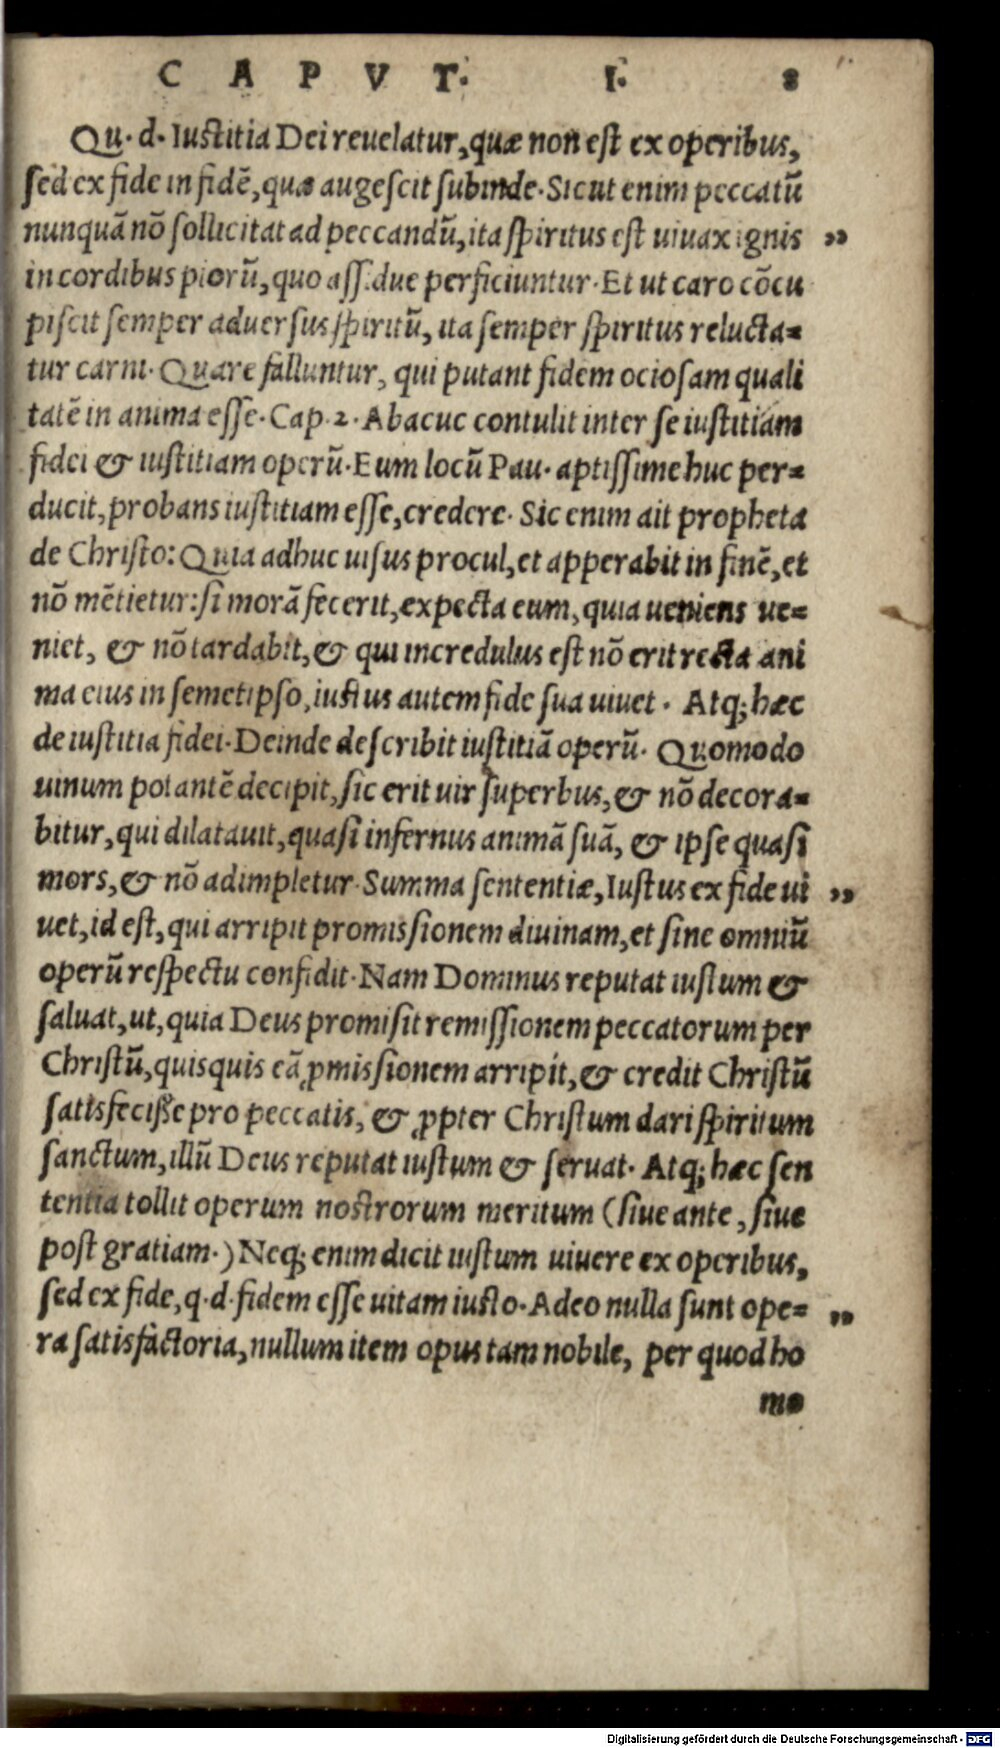 CAPVT. I. 8
Qu. d. Iustitia Dei reuelatur, quæ non est ex operibus,
sed ex fide in fidē, quæ augescit subinde. Sicut enim peccatū
nunquā nō sollicitat ad peccandū, ita spiritus est uiuax ignis ”
in cordibus piorū, quo assidue perficiuntur. Et ut caro cōcu
piscit semper aduersus spiritū, ita semper spiritus relucta=
tur carni. Quare falluntur, qui putant fidem ociosam quali
tatē in anima esse. Cap. 2. Abacuc contulit inter se iustitiam
fidei & iustitiam operū. Eum locū Pau. aptissime huc per=
ducit, probans iustitiam esse, credere. Sic enim ait propheta
de Christo: Quia adhuc uisus procul, et apperabit in finē, et
nō mētietur: si morā fecerit, expecta eum, quia ueniens ue=
niet, & nō tardabit, & qui incredulus est nō erit recta ani
ma eius in semetipso, iustus autem fide sua uiuet. Atq; hæc
de iustitia fidei. Deinde describit iustitiā operū. Quomodo
uinum potantē decipit, sic erit uir superbus, & nō decora=
bitur, qui dilatauit, quasi infernus animā suā, & ipse quasi
mors, & nō adimpletur. Summa sententiæ, Iustus ex fide ui ”
uet, id est, qui arripit promissionem diuinam, et sine omniū
operū respectu confidit. Nam Dominus reputat iustum &
saluat, ut, quia Deus promisit remissionem peccatorum per
Christū, quisquis eā ꝓmissionem arripit, & credit Christū
satisfecisse pro peccatis, & ꝓpter Christum dari spiritum
sanctum, illū Deus reputat iustum & seruat. Atq; hæc sen
tentia tollit operum nostrorum meritum (siue ante, siue
post gratiam.) Neq; enim dicit iustum uiuere ex operibus,
sed ex fide, q. d. fidem esse uitam iusto. Adeo nulla sunt ope= ”
ra satisfactoria, nullum item opus tam nobile, per quod ho
mo
Digitalisierung gefördert durch die Deutsche Forschungsgemeinschaft - DFG